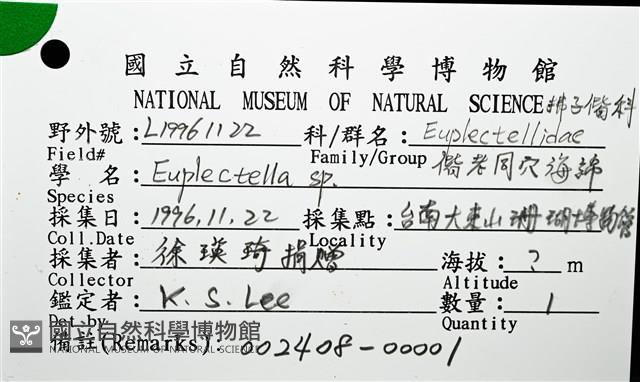 國立自然科學博物館
NATIONAL MUSEUM OF NATURAL SCIENCE 拂子偕科
野外號：L19961122 科/群名：Euplectellidae
Field# Family/Group 偕老同穴海綿
學 名：Euplectella sp.
Species
採集日：1996.11.22 採集點：台南大東山珊瑚博物館
Coll.Date Locality
採集者：徐瑛琦捐贈 海拔：? m
Collector Altitude
鑑定者：K. S. Lee 數量：1
Det.by Quantity
備註(Remarks)：002408-00001
國立自然科學博物館
NATIONAL MUSEUM OF NATURAL SCIENCE